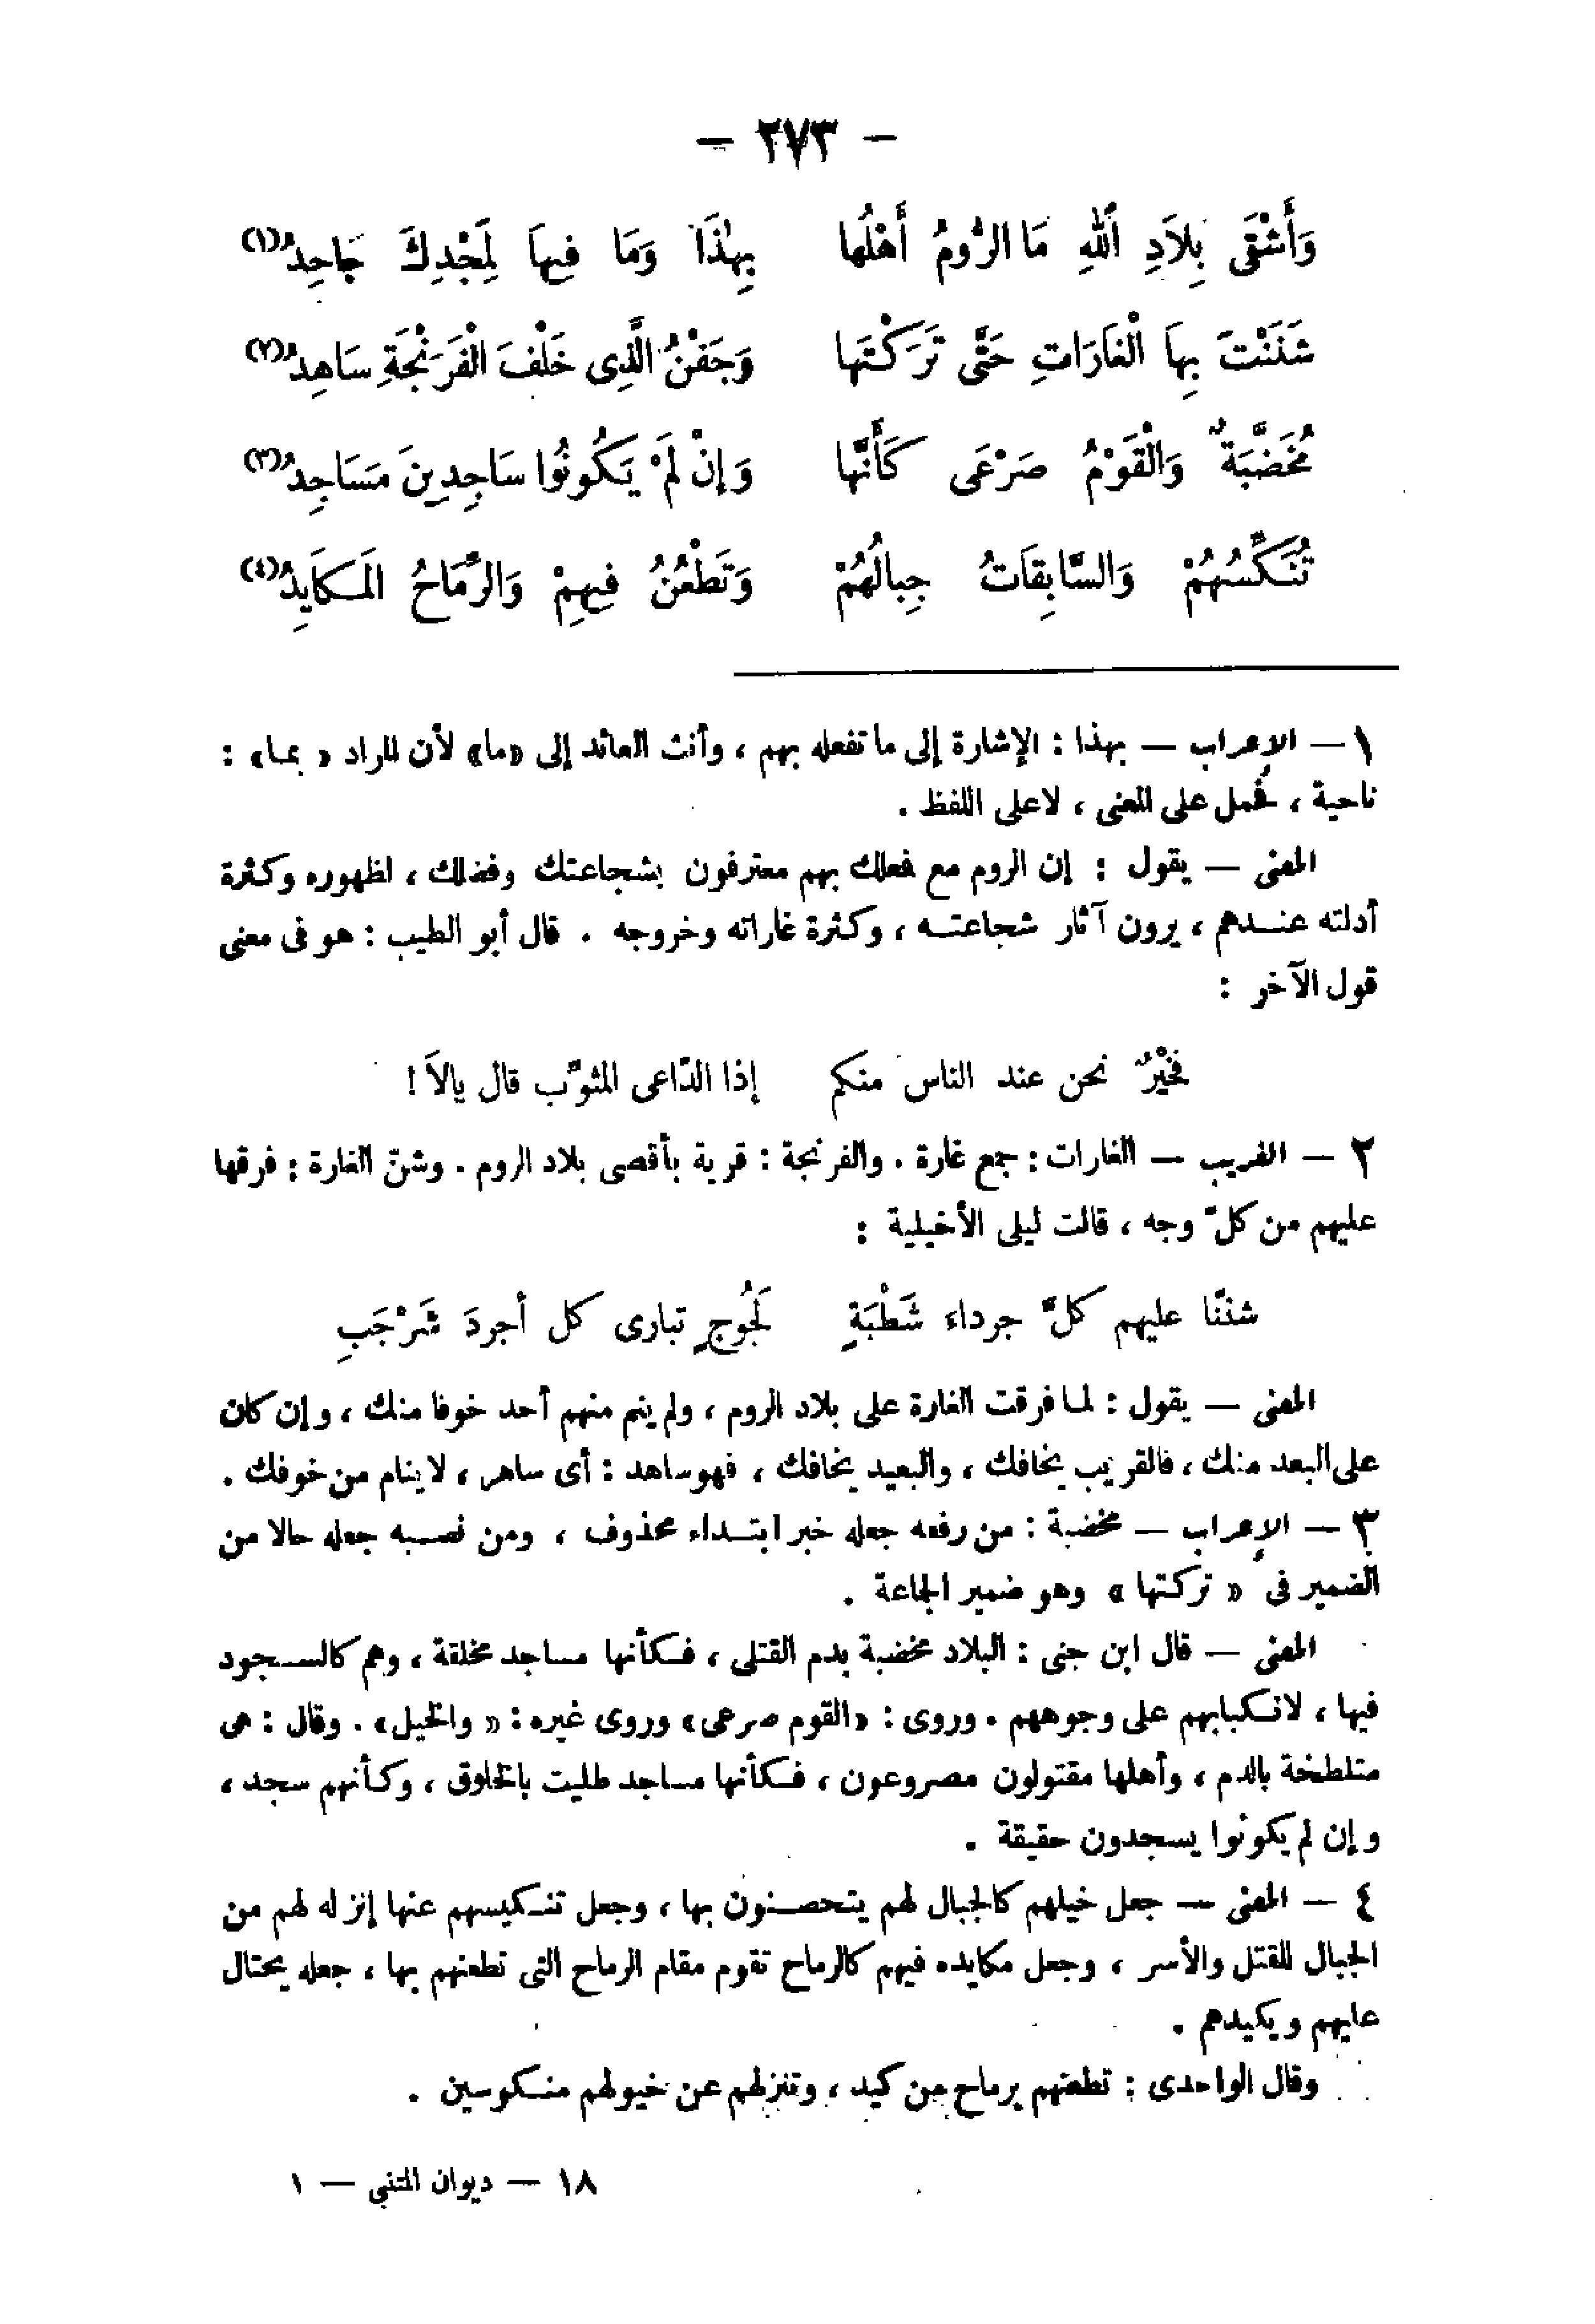 — ٢٧٣ —
وَأَشْقَى بِلاَدِ اللهِ مَا الرُّومُ أَهْلُها بِهٰذَا وَمَا فِيهاَ لِمَجْدِكَ جَاحِدُ(١)
شَنَنْتَ بِهاَ الْغاَرَاتِ حَتَّى تَرَكْتَها وَجَفْنُ الَّذِى خَلْفَ الْفَرَنْجَةِ سَاهِدُ(٢)
مُخَضَّبَةٌ وَالْقَوْمُ صَرْعَى كَأَنَّها وَإِنْ لَمْ يَكُونُوا سَاجِدِينَ مَسَاجِدُ(٣)
تُنَكِّسُهُمْ وَالسَّابِقاَتُ جِبالُهُمْ وَتَطْعُنُ فِيهِمْ وَالرِّمَاحُ المَكايَدِدُ(٤)
١ — الإعراب — بهذا : الإشارة إلى ما تفعله بهم ، وأنث العائد إلى «ما» لأن المراد « بما» :
ناحية ، فحمل على المعنى ، لا على اللفظ .
المعنى — يقول : إن الروم مع فعلك بهم معترفون بشجاعتك وفضلك ، لظهوره وكثرة
أدلته عندهم ، يرون آثار شجاعته ، وكثرة غاراته وخروجه . قال أبو الطيب : هو فى معنى
قول الآخر :
فَخَيْرٌ نحن عند الناس منكم إذا الدّاعى المثوّب قال يالاَ !
٢ — الغريب — الغارات : جمع غارة . والفرنجة : قرية بأقصى بلاد الروم . وشنّ الغارة : فرقها
عليهم من كلّ وجه ، قالت ليلى الأخيلية :
شننّا عليهم كلَّ جرداء شَطْبَةٍ لَجُوجٍ تبارى كل أجردَ شَرْجَبِ
المعنى — يقول : لما فرقت الغارة على بلاد الروم ، ولم ينم منهم أحد خوفا منك ، وإن كان
على البعد منك ، فالقريب يخافك ، والبعيد يخافك ، فهو ساهد : أى ساهر ، لا ينام من خوفك .
٣ — الإعراب — مخضبة : من رفعه جعله خبر ابتداء محذوف ، ومن نصبه جعله حالا من
الضمير فى « تركتها » وهو ضمير الجماعة .
المعنى — قال ابن جنى : البلاد مخضبة بدم القتلى ، فكأنها مساجد مخلقة ، وهم كالسجود
فيها ، لانكبابهم على وجوههم . وروى : «القوم صرعى» وروى غيره : « والخيل» . وقال : هى
متلطخة بالدم ، وأهلها مقتولون مصروعون ، فكأنها مساجد طليت بالخلوق ، وكأنهم سجد ،
وإن لم يكونوا يسجدون حقيقة .
٤ — المعنى — جعل خيلهم كالجبال لهم يتحصنون بها ، وجعل تنكيسهم عنها إنزاله لهم من
الجبال للقتل والأسر ، وجعل مكايده فيهم كالرماح تقوم مقام الرماح التى تطعنهم بها ، جعله يحتال
عليهم ويكيدهم .
وقال الواحدى : تطعنهم برماح من كيد ، وتنزلهم عن خيولهم منكوسين .
١٨ — ديوان المتنبى — ١